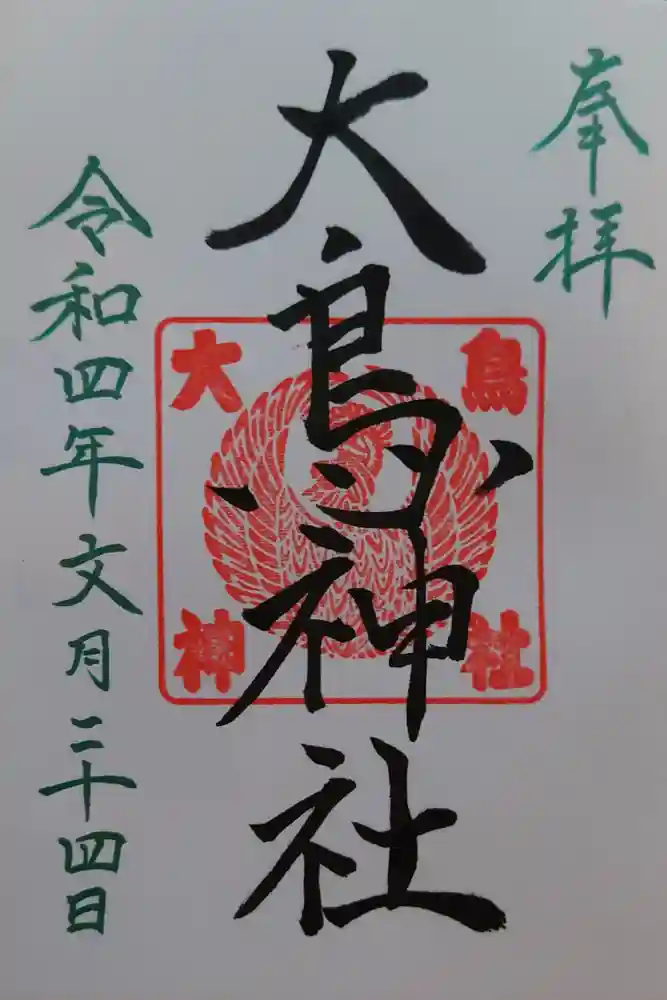 奉拝
大鳥神社
大鳥
神社
令和四年文月二十四日